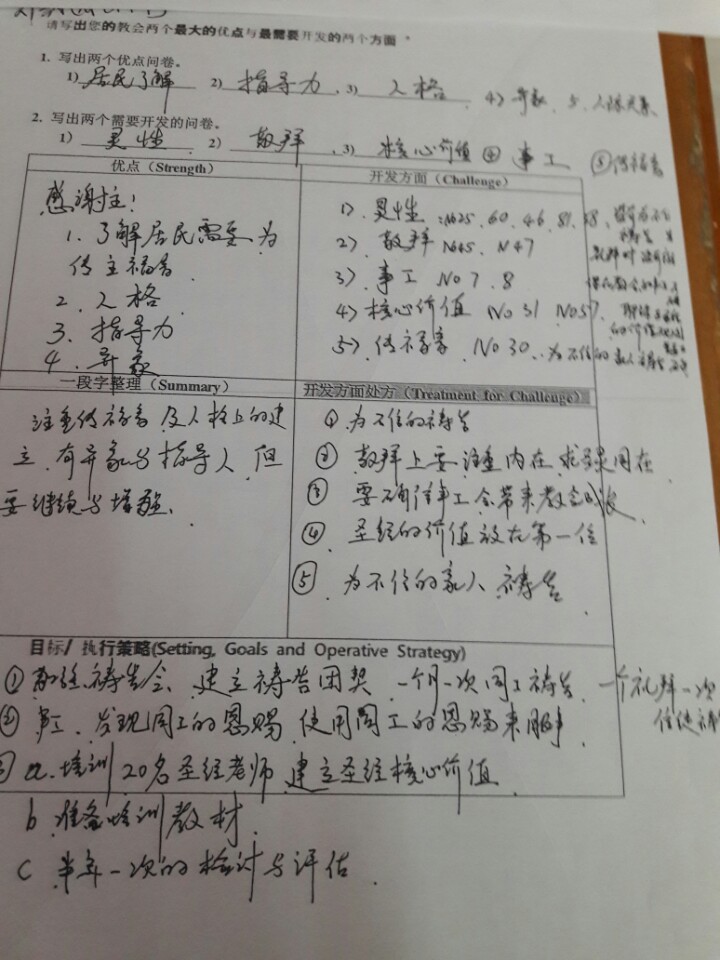 请写出您的教会两个最大的优点与最需要开发的两个方面
1. 写出两个优点问卷。
1) 居民了解 2) 指导力 3) 人格 4) 异象 5.
2. 写出两个需要开发的问卷。
1) 灵性 2) 敬拜 3) 核心价值 ④ 事工 ⑤ 传福音
优点（Strength）
感谢主！
1. 了解居民需要为
传主福音
2. 人格
3. 指导力
4. 异象
开发方面（Challenge）
1) 灵性: No25. 60. 46. 81.
2) 敬拜 No45. N47
3) 事工 No 7. 8
4) 核心价值 No 31 No57.
5) 传福音 No 30. 为不信的家人祷告
一段字整理（Summary）
注重传福音及人格上的建
立. 有异象与指导人. 但
要继续与增强.
开发方面处方（Treatment for Challenge）
① 为不信的祷告
② 敬拜上要注重内在
③ 要确信事工会带来教会成长
④ 圣经的价值放在第一位
⑤ 为不信的家人祷告
目标/ 执行策略(Setting, Goals and Operative Strategy)
① 加强祷告会、建立祷告团契 一个月一次同工祷告. 一个礼拜一次
② 事工. 发现同工的恩赐 使用同工的恩赐来服事
a. 培训20名圣经老师 建立圣经核心价值
b 准备培训教材.
c 半年一次的检讨与评估.